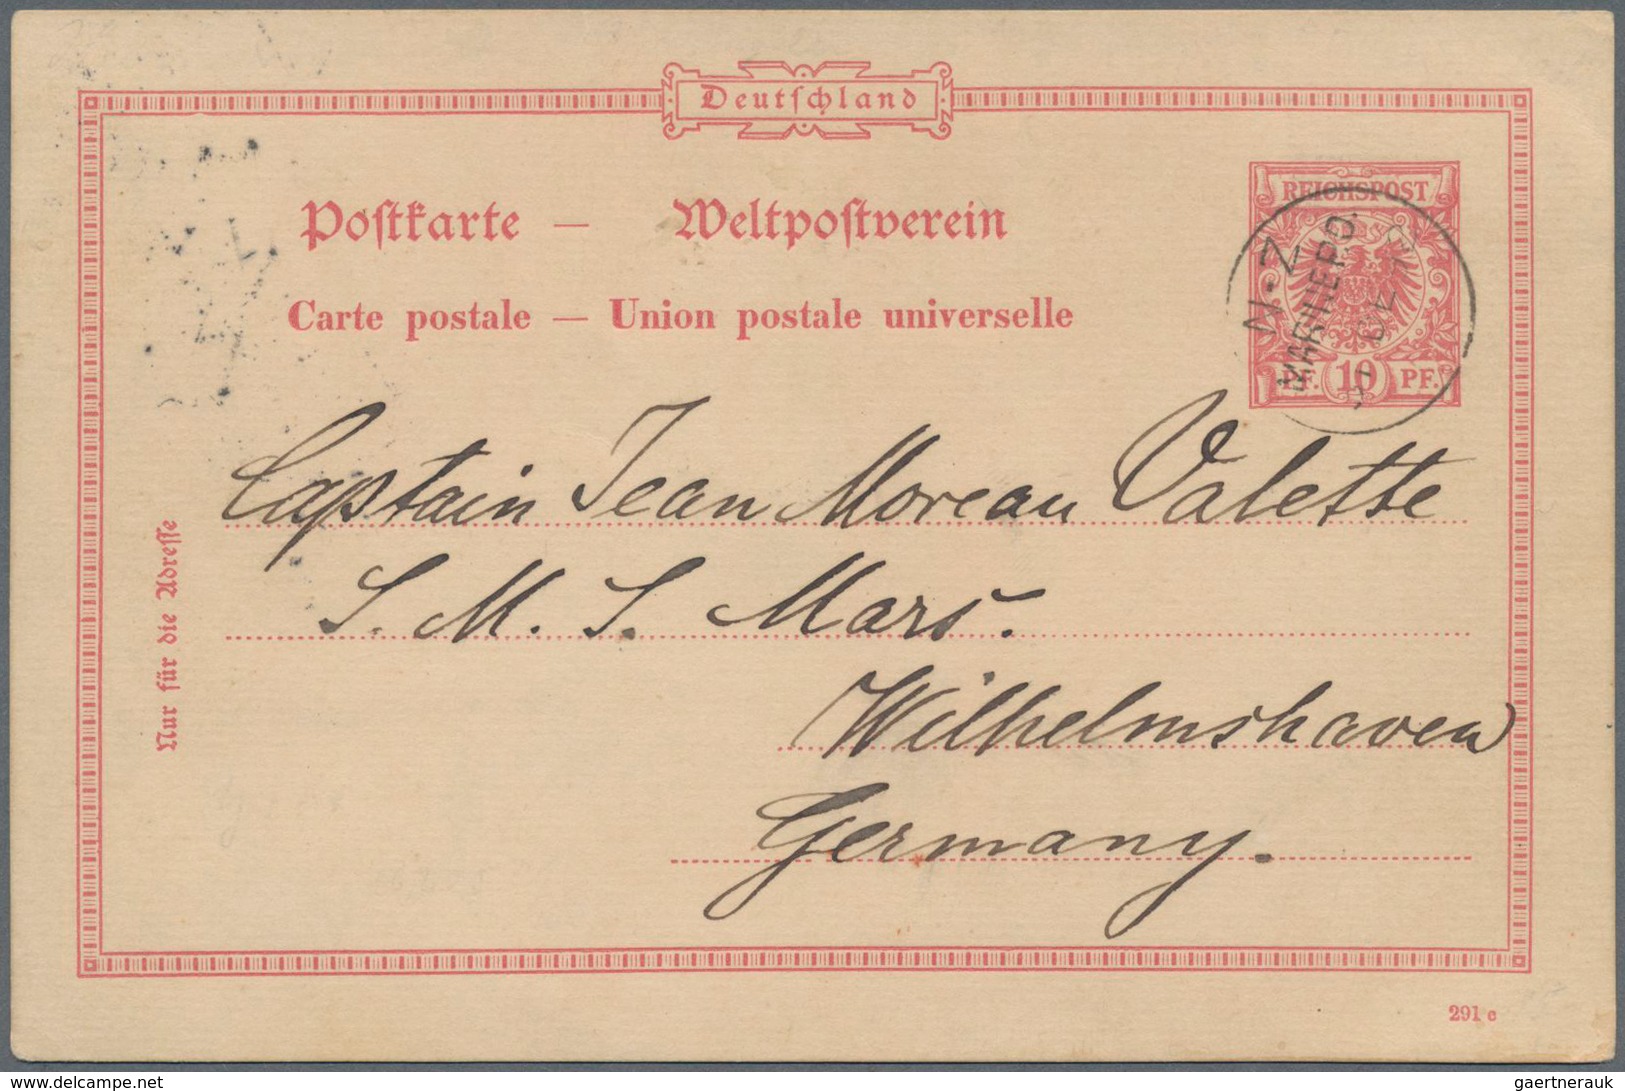 Deutschland
Postkarte — Weltpostverein
Carte postale — Union postale universelle
REICHSPOST
PF. 10 PF.
N-Z
MARINEPO.
Captain Jean Moreau Valette
S. M. S. Mars.
Wilhelmshaven
Germany.
Nur für die Adresse
291 c
www.delcampe.net
gaertnerauk